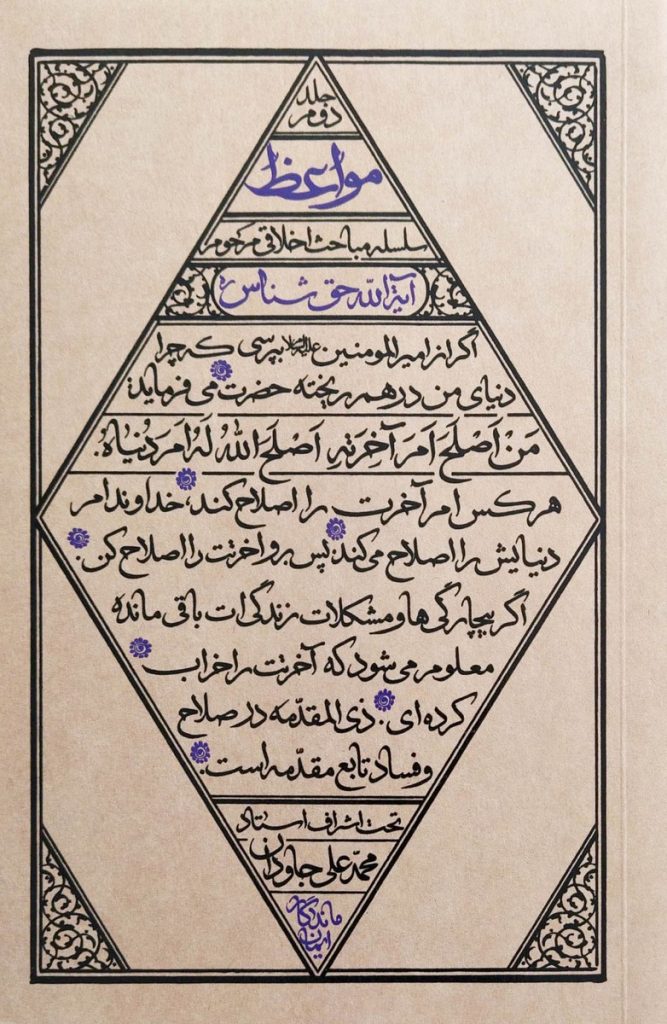 جلد
دوم
مواعظ
سلسله مباحث اخلاقی مرحوم
آیة الله حق شناس ره
اگر از امیرالمومنین علیه‌السلام بپرسی که چرا
دنیای من درهم ریخته حضرت می فرماید:
مَنْ اَصْلَحَ اَمرَ آخِرَتِهِ اَصْلَحَ اللهُ لَهُ اَمرَ دُنیاهُ.
هر کس امر آخرت را اصلاح کند، خداوند امر
دنیایش را اصلاح می کند، پس برو اخرتت را اصلاح کن.
اگر بیچارگی ها و مشکلات زندگی ات باقی مانده
معلوم می شود که آخرتت را خراب
کرده ای. ذی المقدّمه در صلاح
و فساد تابع مقدّمه است.
تحت اشراف استاد
محمّد علی جاودان
ماندگار
ایمان